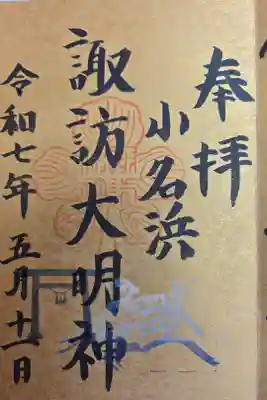 奉拝
小名浜
諏訪大明神
令和七年 五月十一日